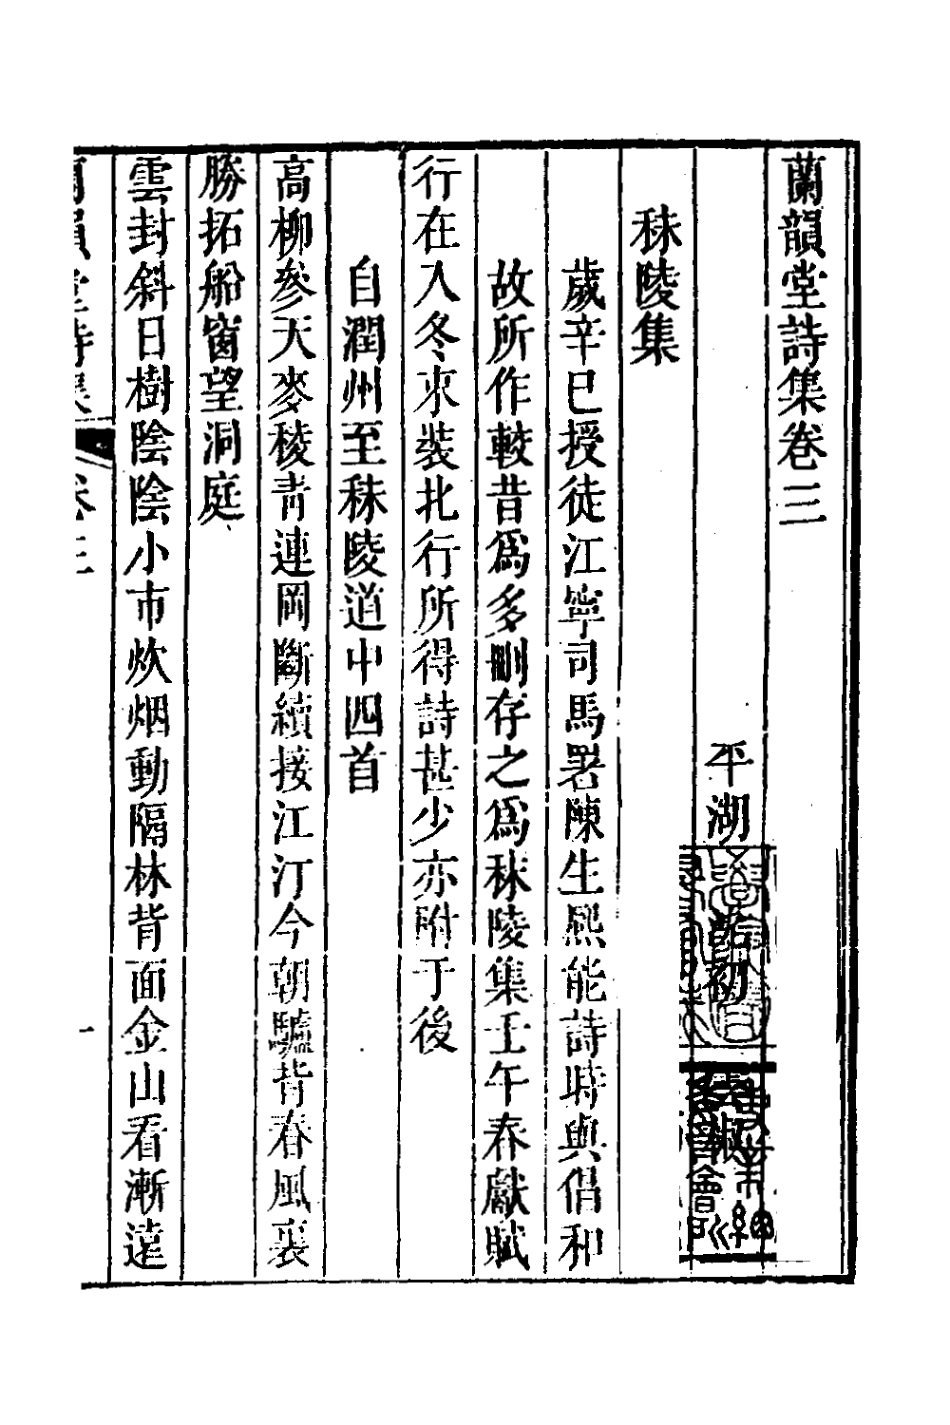 蘭韻堂詩集卷三
平湖 沈初 雲椒
秣陵集
歲辛巳授徒江寧司馬署陳生熙能詩時與倡和
故所作較昔爲多刪存之爲秣陵集壬午春獻賦
行在入冬束裝北行所得詩甚少亦附于後
自潤州至秣陵道中四首
高柳參天麥稜青連岡斷續接江汀今朝驢背春風裏
勝拓船窗望洞庭
雲封斜日樹陰陰小市炊烟動隔林背面金山看漸遠
蘭韻堂詩集 卷三 一